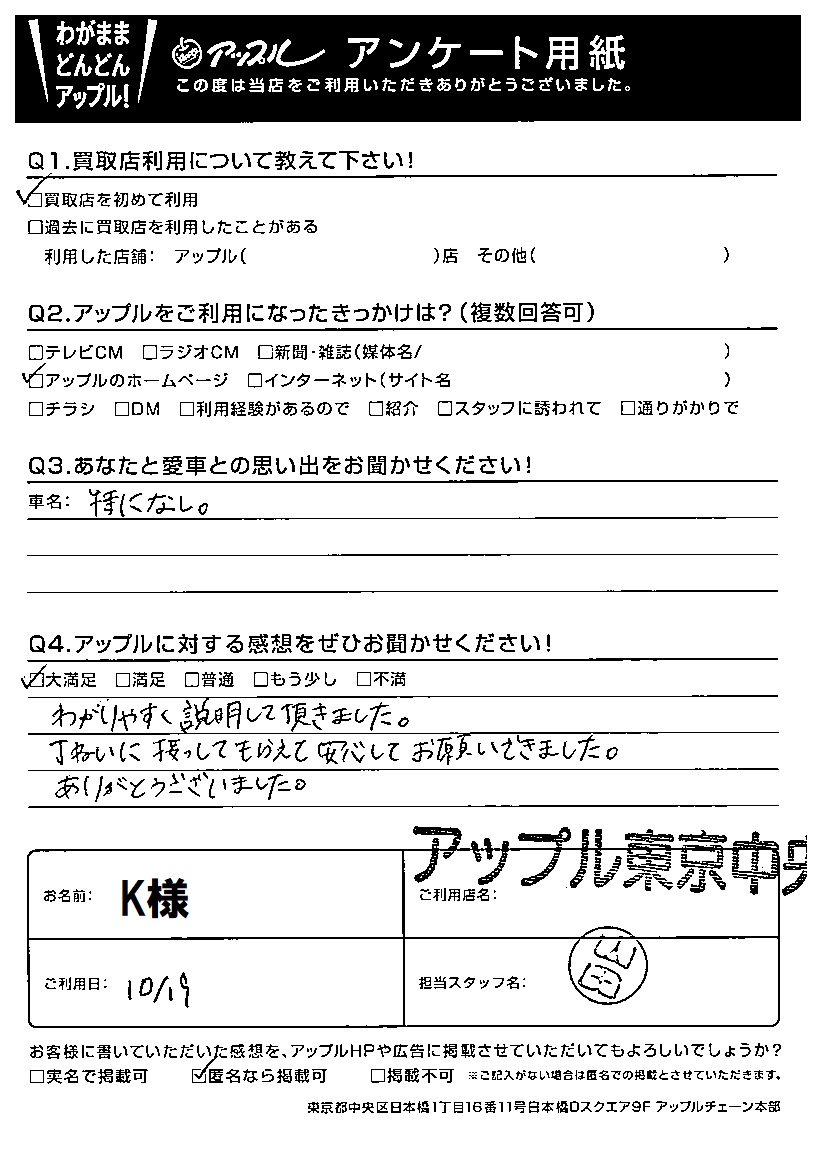 わがまま
どんどん
アップル!
アップル アンケート用紙
この度は当店をご利用いただきありがとうございました。
Q1.買取店利用について教えて下さい!
☑買取店を初めて利用
□過去に買取店を利用したことがある
利用した店舗： アップル( )店 その他( )
Q2.アップルをご利用になったきっかけは?(複数回答可)
□テレビCM □ラジオCM □新聞・雑誌(媒体名/ )
☑アップルのホームページ □インターネット(サイト名 )
□チラシ □DM □利用経験があるので □紹介 □スタッフに誘われて □通りがかりで
Q3.あなたと愛車との思い出をお聞かせください!
車名： 特になし。
Q4.アップルに対する感想をぜひお聞かせください!
☑大満足 □満足 □普通 □もう少し □不満
わがりやすく説明して頂きました。
丁ねいに接してもらえて安心してお願いできました。
ありがとうございました。
アップル東京中央
お名前： K様
ご利用店名：
ご利用日： 10/19
担当スタッフ名：
お客様に書いていただいた感想を、アップルHPや広告に掲載させていただいてもよろしいでしょうか?
□実名で掲載可 ☑匿名なら掲載可 □掲載不可 ※ご記入がない場合は匿名での掲載とさせていただきます。
東京都中央区日本橋1丁目16番11号日本橋Dスクエア9F アップルチェーン本部